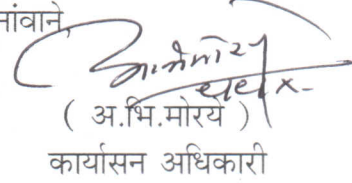 नांवाने,
( अ.भि.मोरये )
कार्यासन अधिकारी